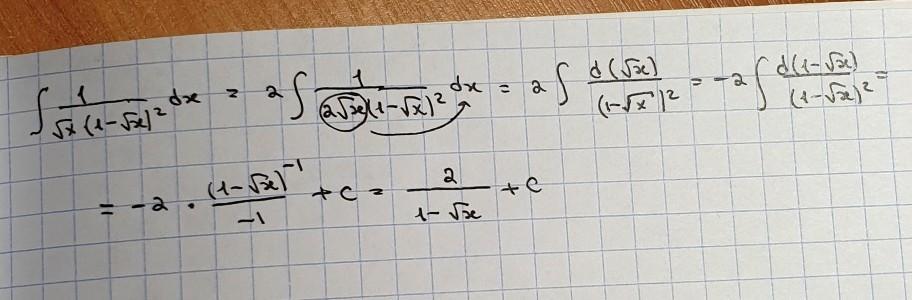 ∫ 1/(√x (1-√x)²) dx = 2 ∫ 1/(2√x (1-√x)²) dx = 2 ∫ d(√x)/(1-√x)² = -2 ∫ d(1-√x)/(1-√x)² =
= -2 · (1-√x)⁻¹/-1 + c = 2/(1-√x) + c